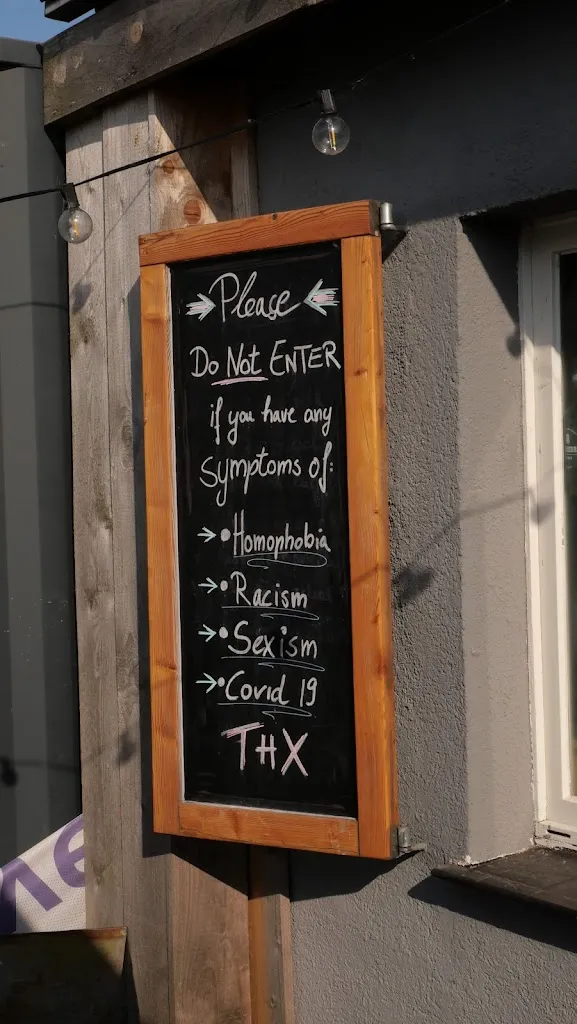 Please
Do Not ENTER
if you have any
Symptoms of:
Homophobia
Racism
Sexism
Covid 19
THX